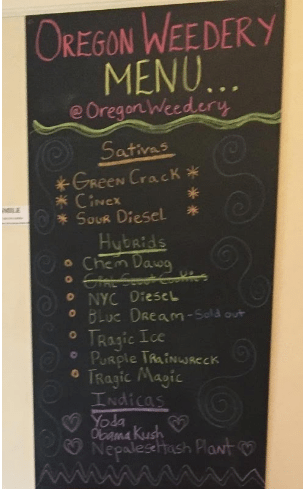 OREGON WEEDERY
MENU...
@OregonWeedery
Sativas
GREEN CRACK
CINEX
SOUR DIESEL
Hybrids
CHEM DAWG
GIRL SCOUT COOKIES
NYC DIESEL
BLUE DREAM - Sold out
TRAGIC ICE
PURPLE TRAINWRECK
TRAGIC MAGIC
INDICAS
Yoda
Obama Kush
Nepalese Hash Plant